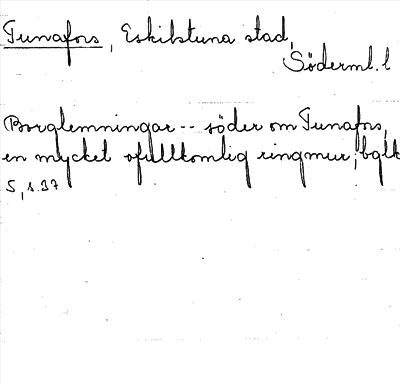 Tunafors, Eskilstuna stad,
Söderml. l
Borglemningar -- söder om Tunafors,
en mycket ofullkomlig ringmur; bglk
5, s. 37